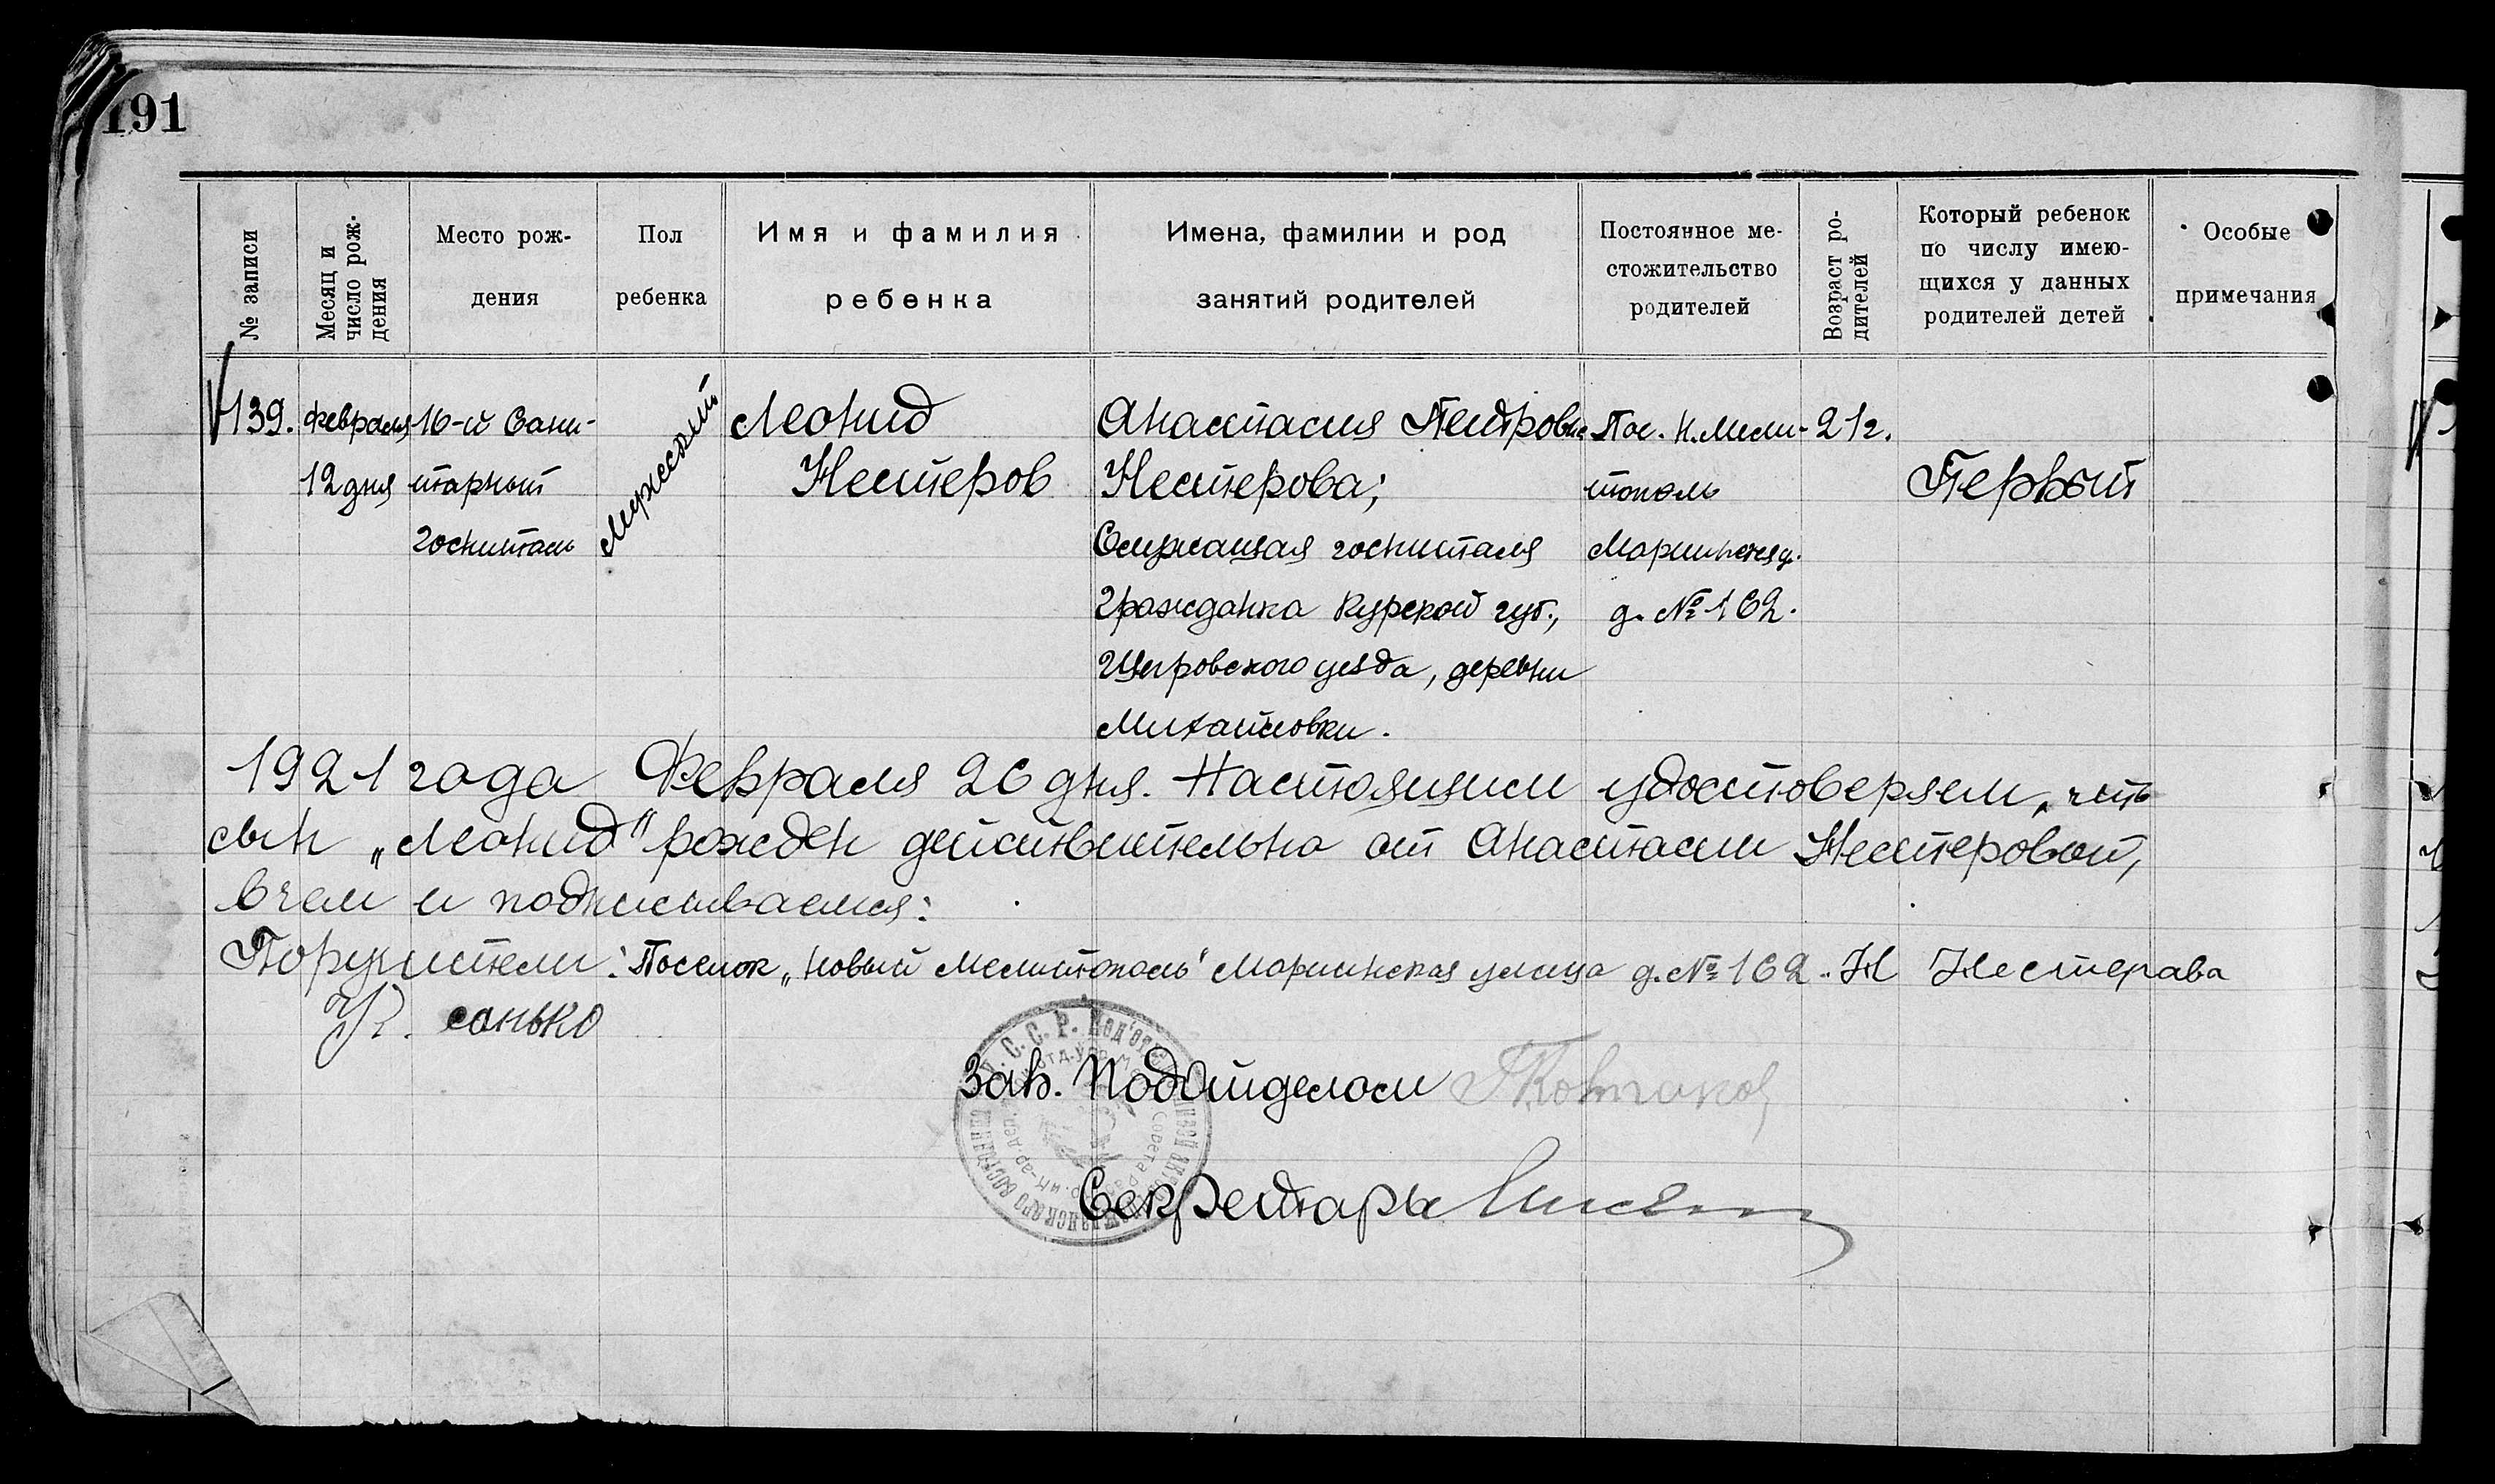 191
№ записи
Месяц и
число рож-
дения
Место рож-
дения
Пол
ребенка
Имя и фамилия
ребенка
Имена, фамилии и род
занятий родителей
Постоянное ме-
стожительство
родителей
Возраст ро-
дителей
Который ребенок
по числу имею-
щихся у данных
родителей детей
Особые
примечания
139.
Февраля
12 дня
16-й Сани-
тарный
госпиталь
Мужской
Леонид
Нестеров
Анастасия Петровна
Нестерова;
Служащая госпиталя
Гражданка Курской губ.,
Щигровского уезда, деревни
Михайловки.
Пос. Н. Мели-
тополь
Мариинская у.
д. № 162.
21 г.
Первый
1921 года Февраля 26 дня. Настоящим удостоверяем, что
сын „Леонид" рожден действительно от Анастасии Нестеровой,
в чем и подписываемся:
Поручители: Поселок „Новый Мелитополь" Мариинская улица д. № 162. Н Нестерава
санько
Зав. Подотделом
Секретарь